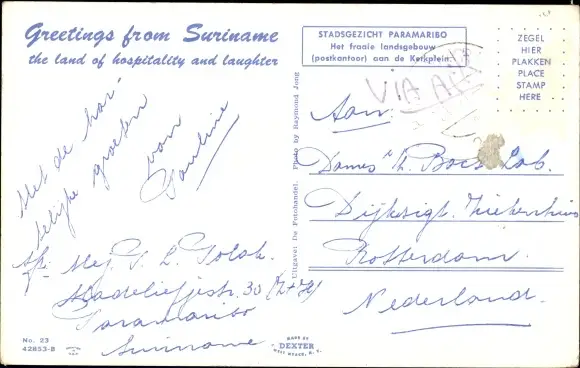 Greetings from Suriname
the land of hospitality and laughter
STADSGEZICHT PARAMARIBO
Het fraaie landsgebouw
(postkantoor) aan de Kerkplein.
ZEGEL
HIER
PLAKKEN
PLACE
STAMP
HERE
VIA
Met de har
telijke groeten
van
Pauline
Mej. S. L.
30
Paramaribo
Suriname
Aan:
Dames Th. Lab.
Dijkzigt. Ziekenhuis
Rotterdam.
Nederland.
Uitgave: De Fotohandel. Photo by Raymond Jong
No. 23
42853-B
MADE BY
DEXTER
WEST NYACK, N. Y.